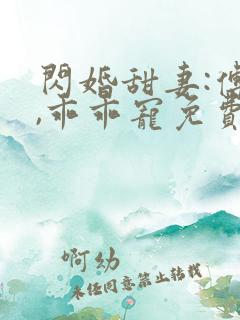 閃婚甜妻:傅
,乖乖寵免費
啊幼
未经同意禁止转载